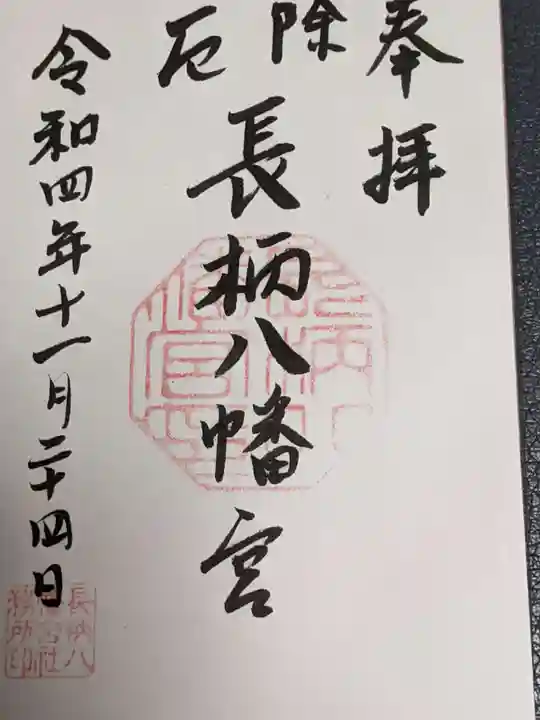 奉拝
厄除
長柄八幡宮
令和四年十一月二十四日
長柄八
幡宮社
務所印